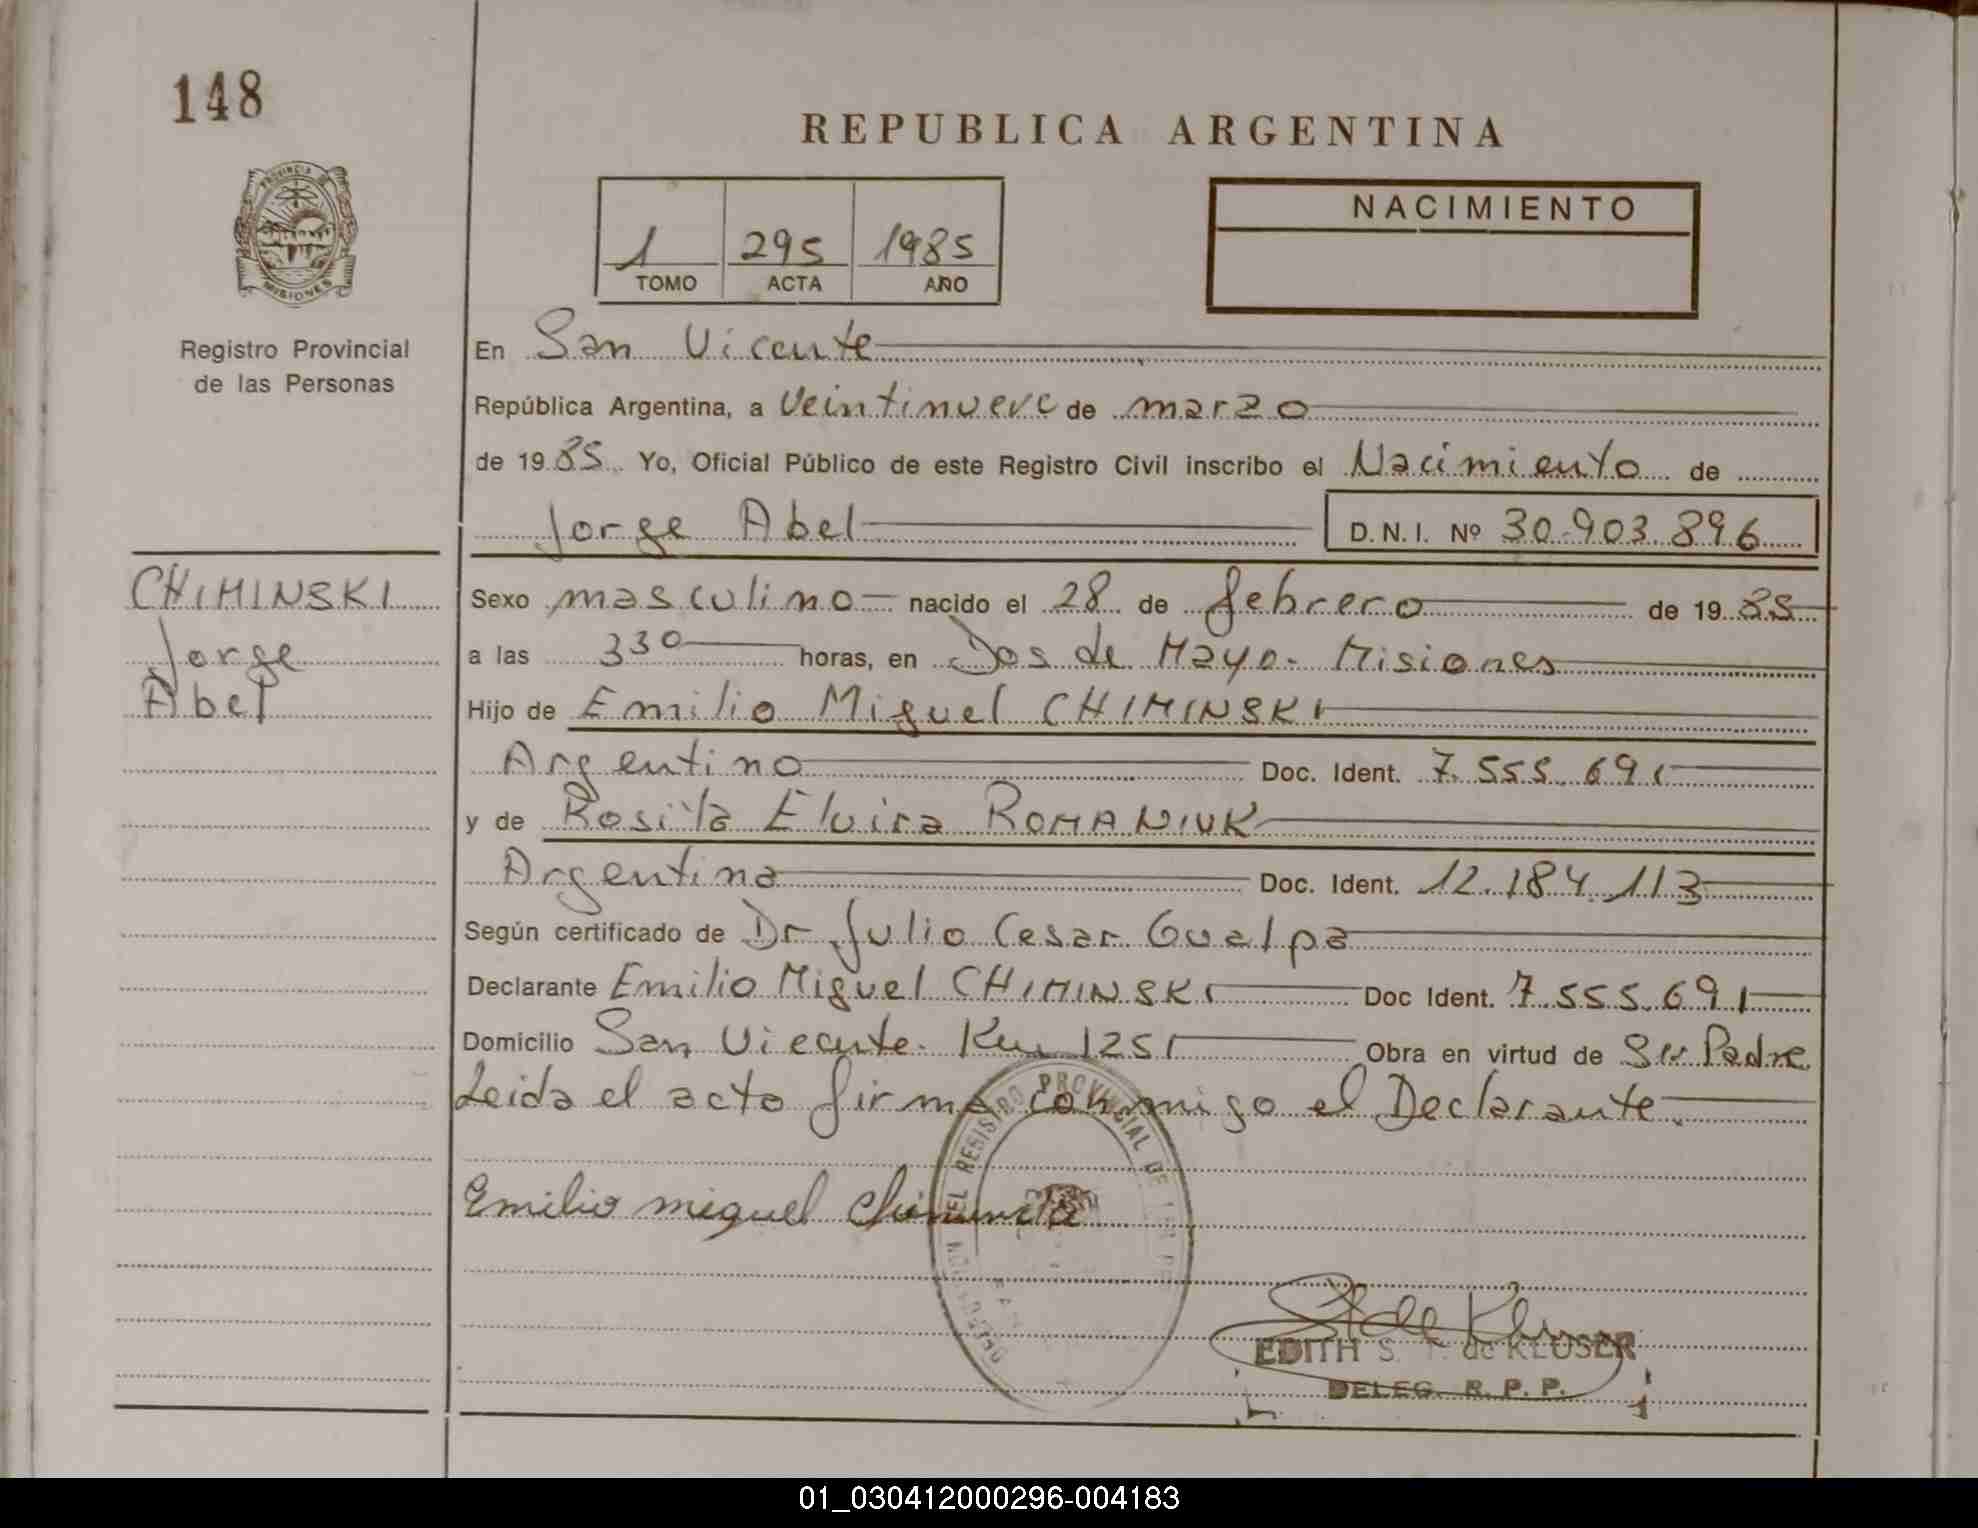 148
REPUBLICA ARGENTINA
PROVINCIA DE
MISIONES
Registro Provincial
de las Personas
1 295 1985
TOMO ACTA AÑO
NACIMIENTO
En San Vicente
República Argentina, a Veintinueve de marzo
de 1985 Yo, Oficial Público de este Registro Civil inscribo el Nacimiento de
Jorge Abel D.N.I. Nº 30.903.896
CHIMINSKI
Jorge
Abel
Sexo masculino nacido el 28 de febrero de 1985
a las 330 horas, en Dos de Mayo - Misiones
Hijo de Emilio Miguel CHIMINSKI
Argentino Doc. Ident. 7.555.691
y de Rosita Elvira ROMANIUK
Argentina Doc. Ident. 12.184.113
Según certificado de Dr Julio Cesar Gualpa
Declarante Emilio Miguel CHIMINSKI Doc Ident. 7.555.691
Domicilio San Vicente. Km 1251 Obra en virtud de Su Padre
Leida el acto firma conmigo el Declarante
REGISTRO PROVINCIAL DE
Emilio miguel
EDITH S. T. de KLUSER
DELEG. R. P. P.
01_030412000296-004183